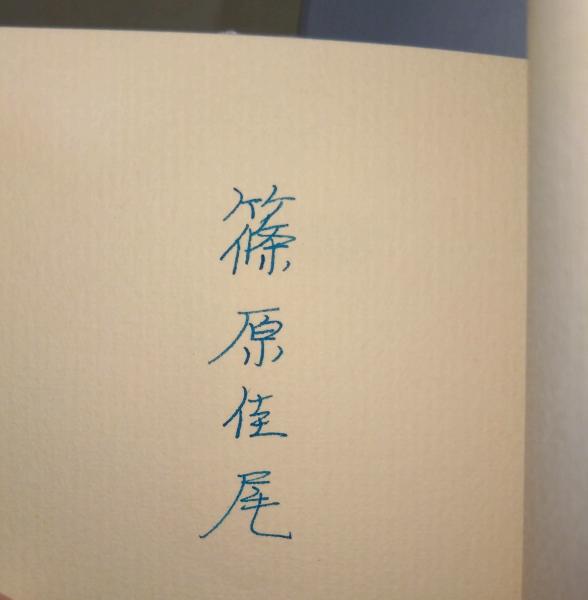 篠原佳尾